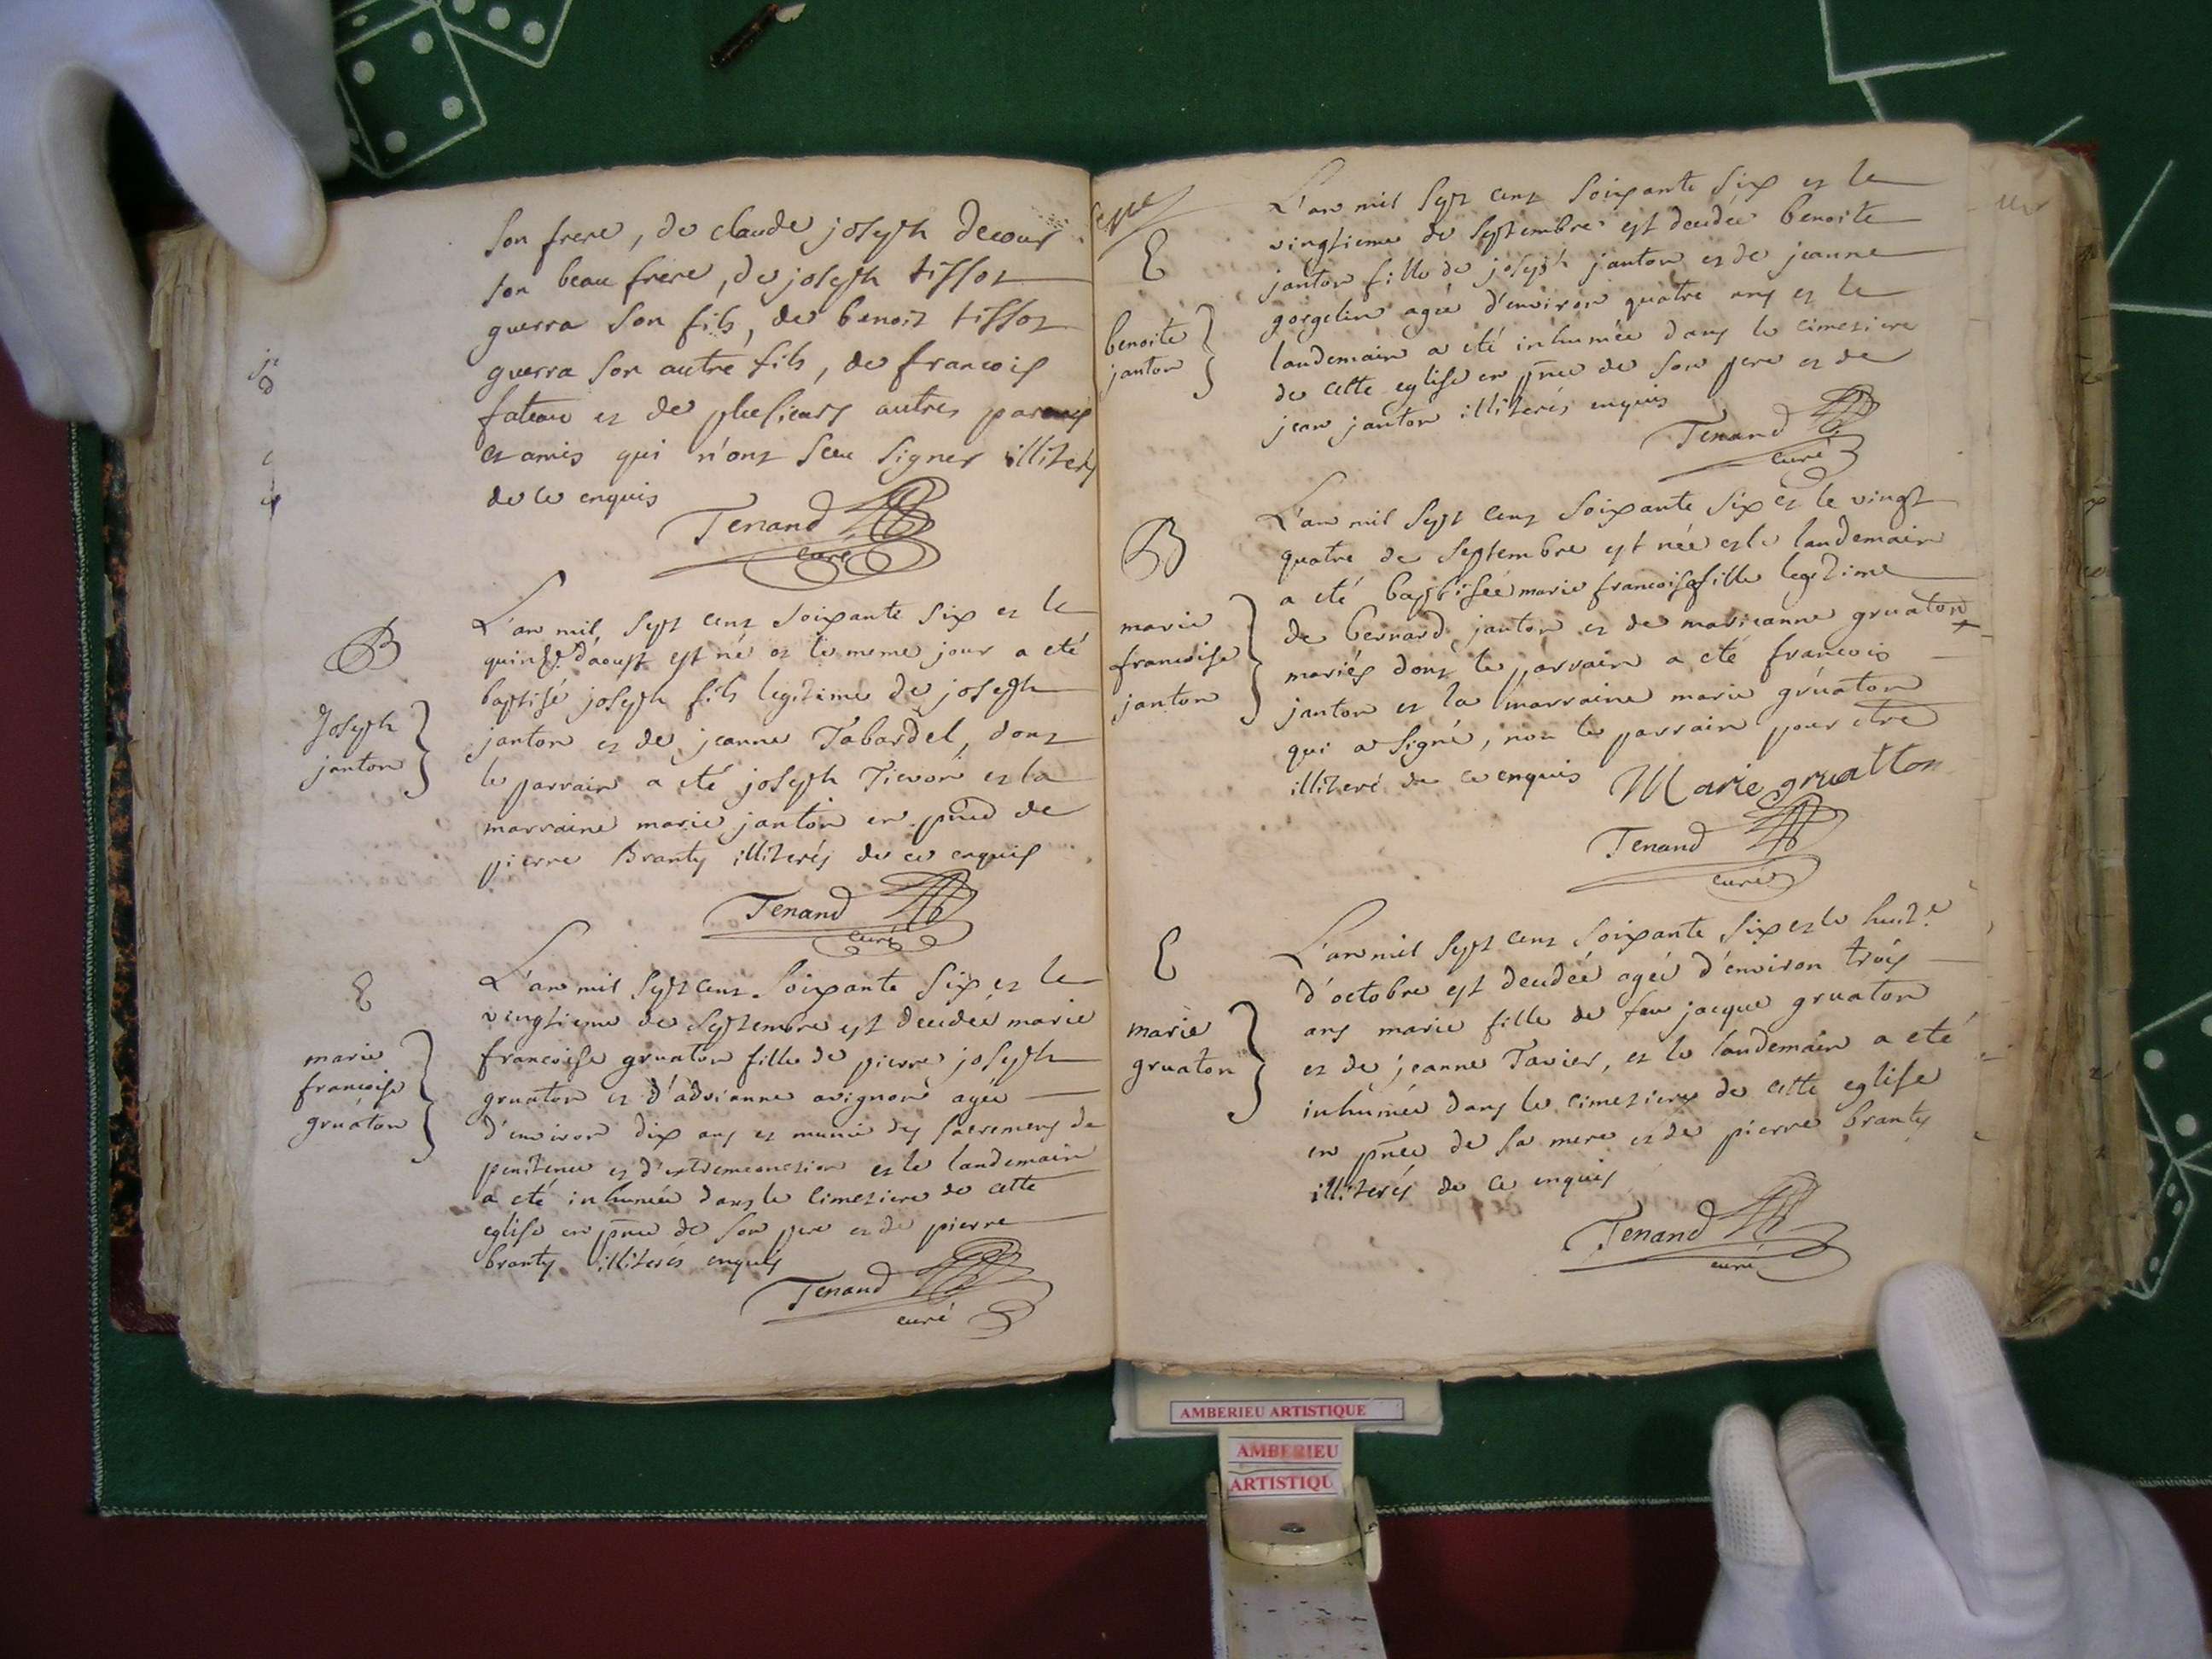 son frere, de claude joseph decour
son beau frere, de joseph tissot
guerra son fils, de benoit tissot
guerra son autre fils, de francois
fateau et de plusieurs autres parens
et amis qui n'ont sceu signer illiterés
de ce enquis
Tenand
curé
B
Joseph
janton
L'an mil sept cent soixante six et le
quinze d'aoust est né et le meme jour a eté
baptisé joseph fils legitime de joseph
janton et de jeanne Tabardel, dont
le parrain a eté joseph et la
marraine marie janton en pnce de
pierre Branty illiterés de ce enquis
Tenand
curé
E
marie
francoise
gruaton
L'an mil sept cent soixante six et le
vingtieme de septembre est decedée marie
francoise gruaton fille de pierre joseph
gruaton et d'adrianne avignon agée
d'environ dix ans et munie des sacremens de
penitence et d'extremeonction et le landemain
a eté inhumée dans le cimetiere de cette
eglise en pnce de son pere et de pierre
branty illiterés enquis
Tenand
curé
E
benoite
janton
L'an mil sept cent soixante six et le
vingtieme de septembre est decedée benoite
janton fille de joseph janton et de jeanne
gorgelin agée d'environ quatre ans et le
landemain a eté inhumée dans le cimetiere
de cette eglise en pnce de son pere et de
jean janton illiterés enquis
Tenand
curé
B
marie
francoise
janton
L'an mil sept cent soixante six et le vingt
quatre de septembre est née et le landemain
a eté baptisée marie francoise fille legitime
de bernard janton et de marieanne gruaton
mariés dont le parrain a eté francois
janton et la marraine marie gruaton
qui a signé, non le parrain pour etre
illiteré de ce enquis Marie gruatton
Tenand
curé
E
marie
gruaton
L'an mil sept cent soixante six et le huite
d'octobre est decedée agée d'environ trois
ans marie fille de feu jacque gruaton
et de jeanne Tavier, et le landemain a eté
inhumée dans le cimetiere de cette eglise
en pnce de sa mere et de pierre branty
illiterés de ce enquis
Tenand
curé
AMBERIEU ARTISTIQUE
AMBERIEU
ARTISTIQU